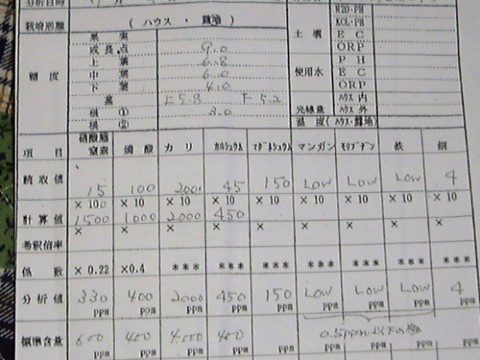 分析日時
栽培形態 ( ハウス ・ 露地 )
糖度
果実
成長点 9.0
上葉 6.8
中葉 6.0
下葉 4.0
茎 上5.8 下5.2
根① 3.0
根②
土壌
H2O-PH
KCL-PH
E C
ORP
使用水
P H
E C
ORP
光線量 ハウス 内
ハウス 外
温度 (ハウス・露地)
項目 硝酸態窒素 燐酸 カリ カルシュウム マグネシュウム マンガン モリブデン 鉄 銅
読取値 15 100 200 45 150 LOW LOW LOW 4
× 100 × 10 × 10 × 10 × 10 × 10 × 10 × 10 × 10
計算値 1500 1000 2000 450
希釈倍率 × × × × × × × × ×
係数 × 0.22 ×0.4 *** *** *** *** *** *** ***
分析値 330 400 2000 450 150 LOW LOW LOW 4
ppm ppm ppm ppm ppm ppm ppm ppm ppm
標準含量 600 400 4000 400 0.5ppm以下
ppm ppm ppm ppm ppm ppm ppm ppm ppm